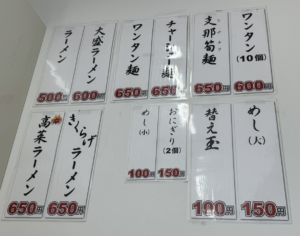 ラーメン
500円
大盛ラーメン
600円
ワンタン麺
650円
チャーシュー麺
650円
支那筍麺
650円
ワンタン
(10個)
600円
高菜ラーメン
650円
きくらげラーメン
650円
めし(小)
100円
おにぎり(2個)
150円
替え玉
100円
めし(大)
150円